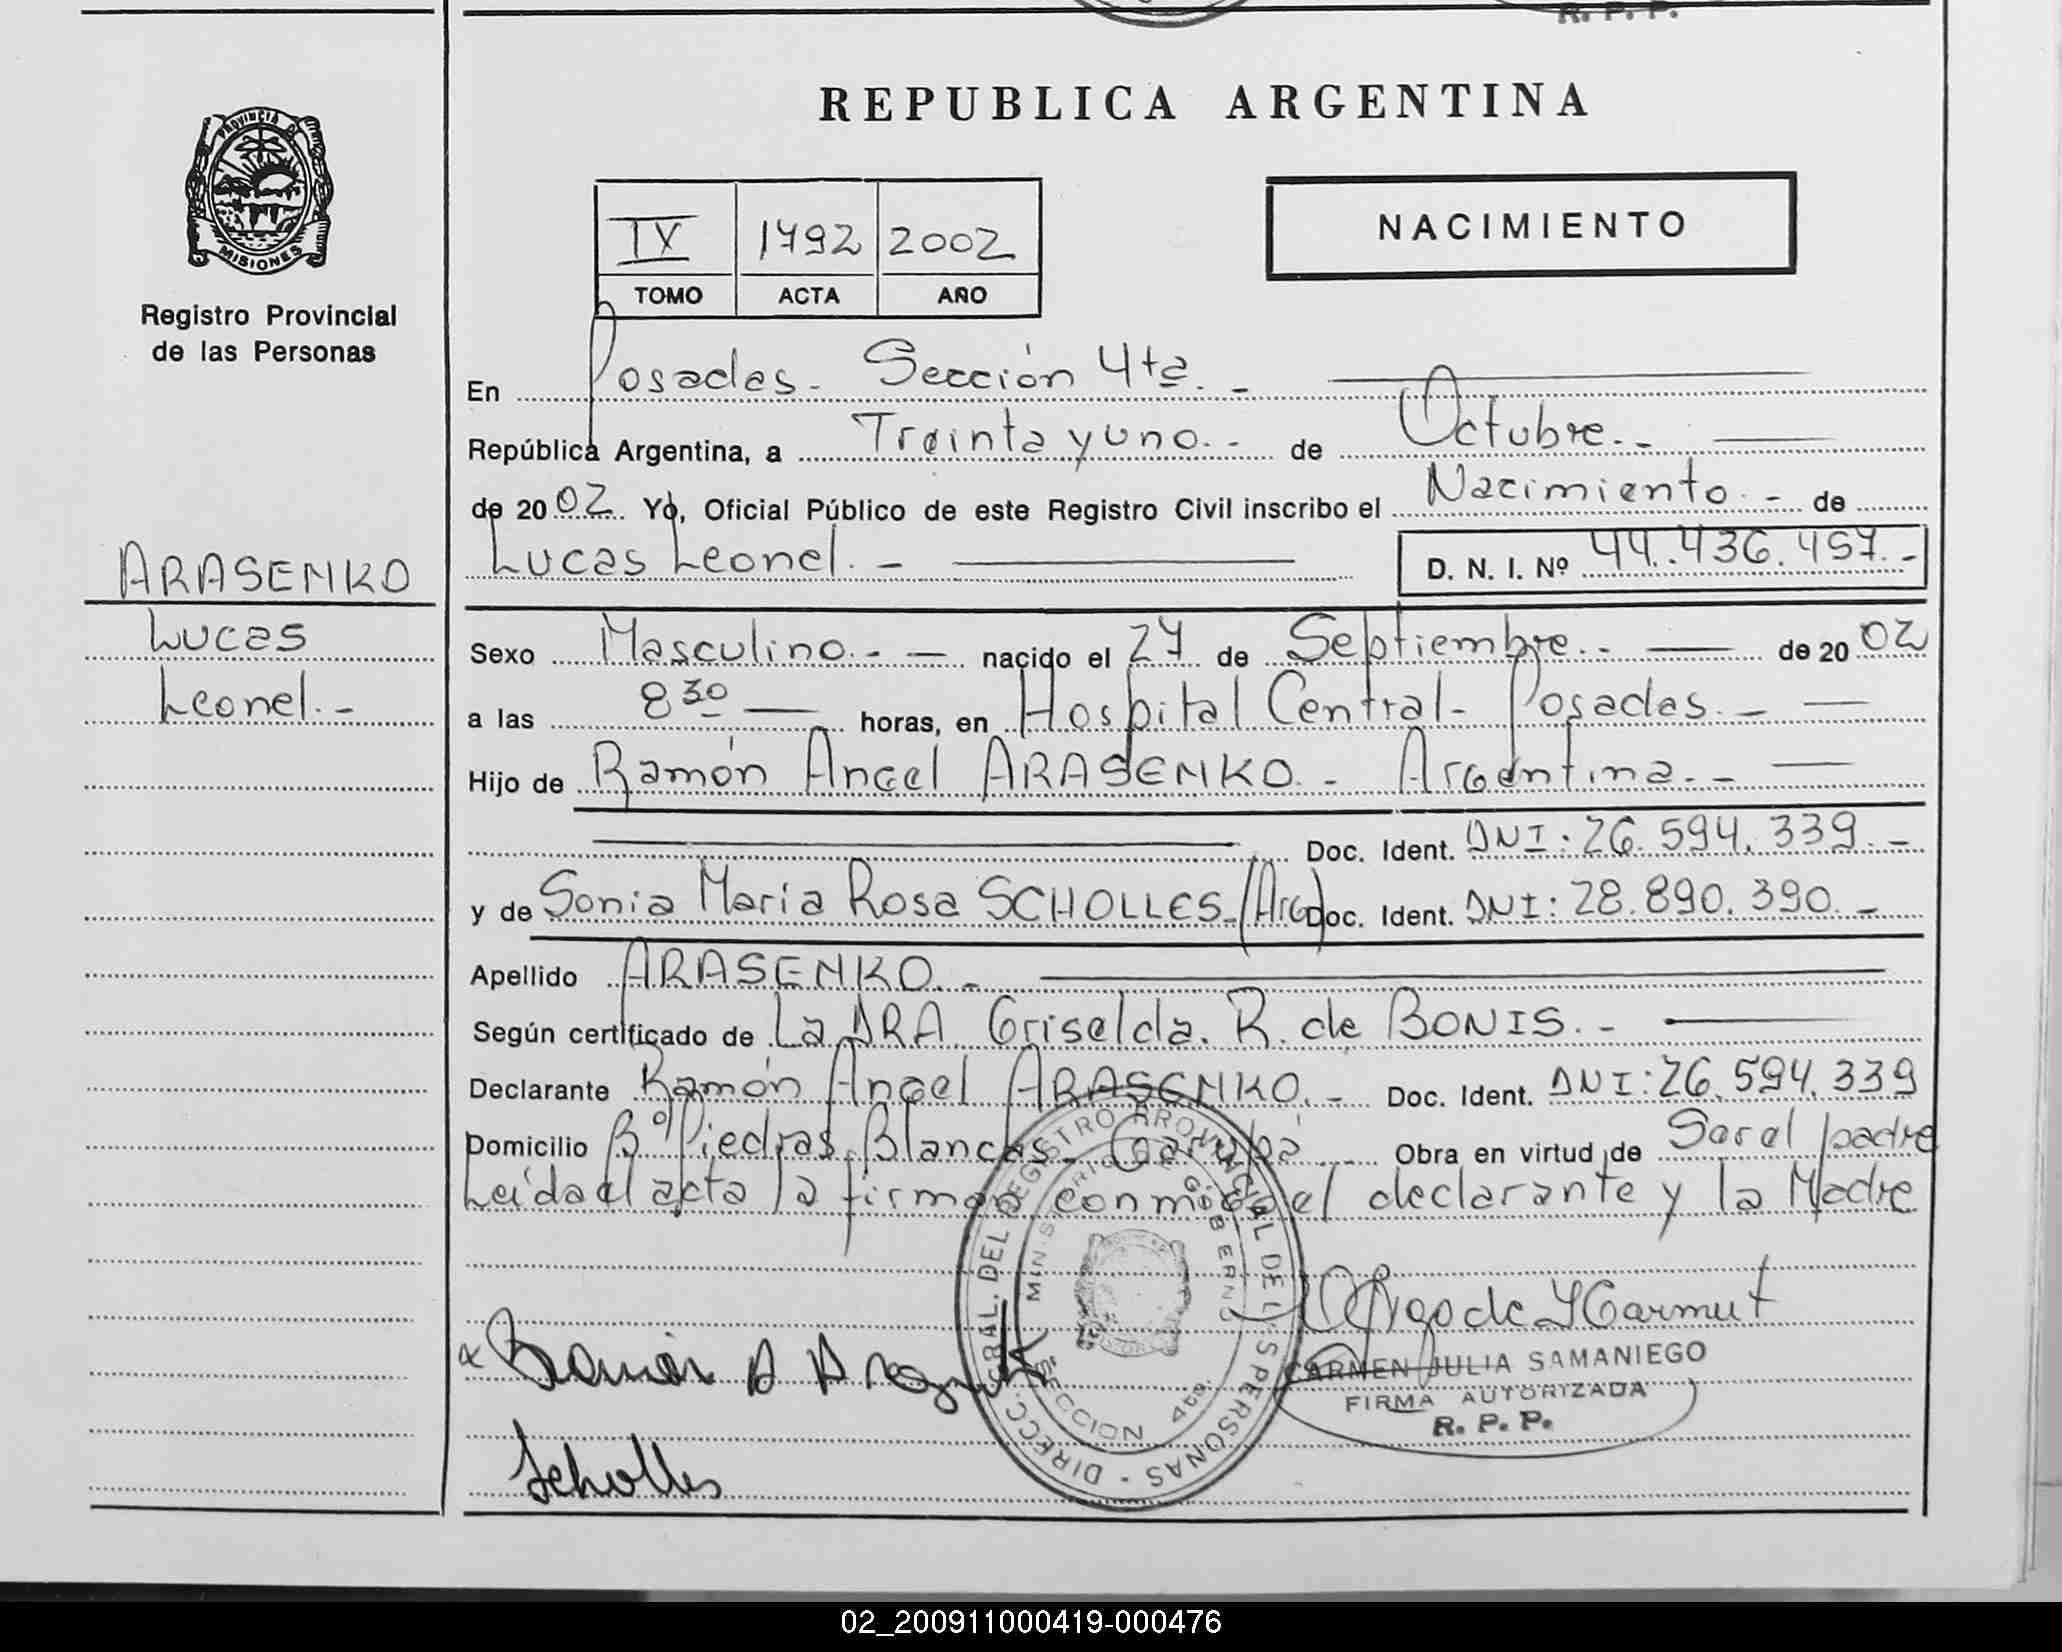 R. P. P.
REPUBLICA ARGENTINA
PROVINCIA DE
MISIONES
Registro Provincial
de las Personas
IV 1792 2002
TOMO ACTA AÑO
NACIMIENTO
En Posadas - Sección 4ta. -
República Argentina, a Treinta y uno. - de Octubre. -
de 2002. Yo, Oficial Público de este Registro Civil inscribo el Nacimiento. - de
Lucas Leonel. - D. N. I. Nº 44.436.457. -
ARASENKO
Lucas
Leonel. -
Sexo Masculino. - - nacido el 27 de Septiembre. - de 2002
a las 8 30 horas, en Hospital Central - Posadas. -
Hijo de Ramón Angel ARASENKO. - Argentina. -
Doc. Ident. DNI: 26.594.339. -
y de Sonia María Rosa SCHOLLES - (Arg) Doc. Ident. DNI: 28.890.390. -
Apellido ARASENKO. -
Según certificado de La DRA Griselda. R. de BONIS. -
Declarante Ramón Angel ARASENKO. - Doc. Ident. DNI: 26.594.339
Domicilio Bº Piedras Blancas - Garupá Obra en virtud de Ser el padre
Leída el acta la firman conmigo el declarante y la Madre
DIRECC. GRAL. DEL REGISTRO PROVINCIAL DE LAS PERSONAS -
MINISTERIO DE GOBIERNO
SECCION 4ta.
CARMEN JULIA SAMANIEGO
FIRMA AUTORIZADA
R. P. P.
Scholles
02_200911000419-000476